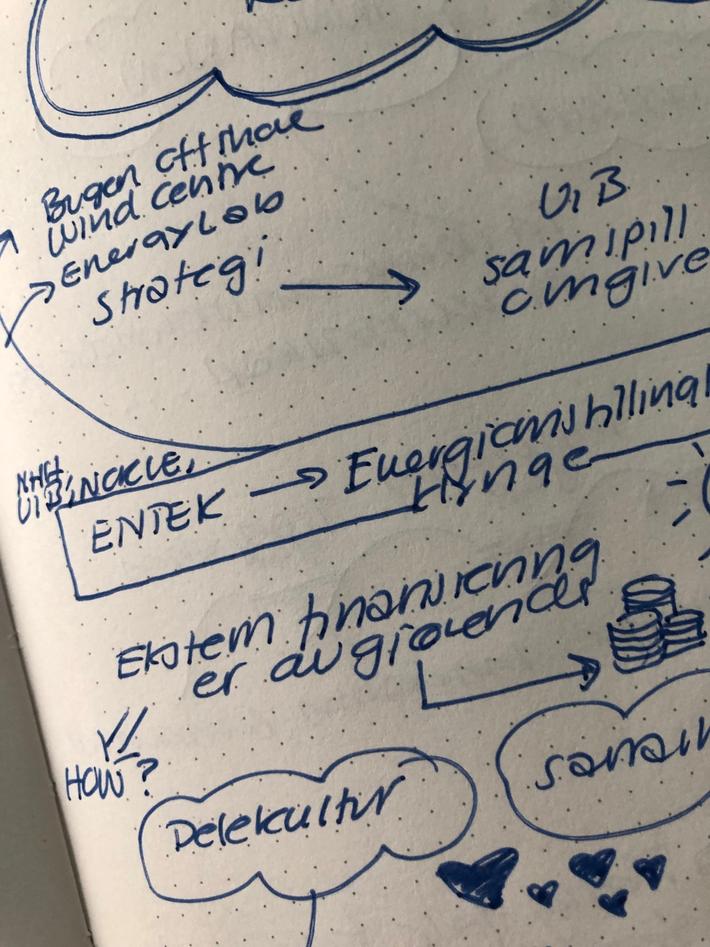 Bergen Offshore
Wind centre
Energy Lab
strategi
UiB
samspill
omgive
NHH,
UiB, NORCE,
ENTEK → Energiomstilling
klynge
Ekstern finansiering
er avgjørende
HOW?
Delekultur